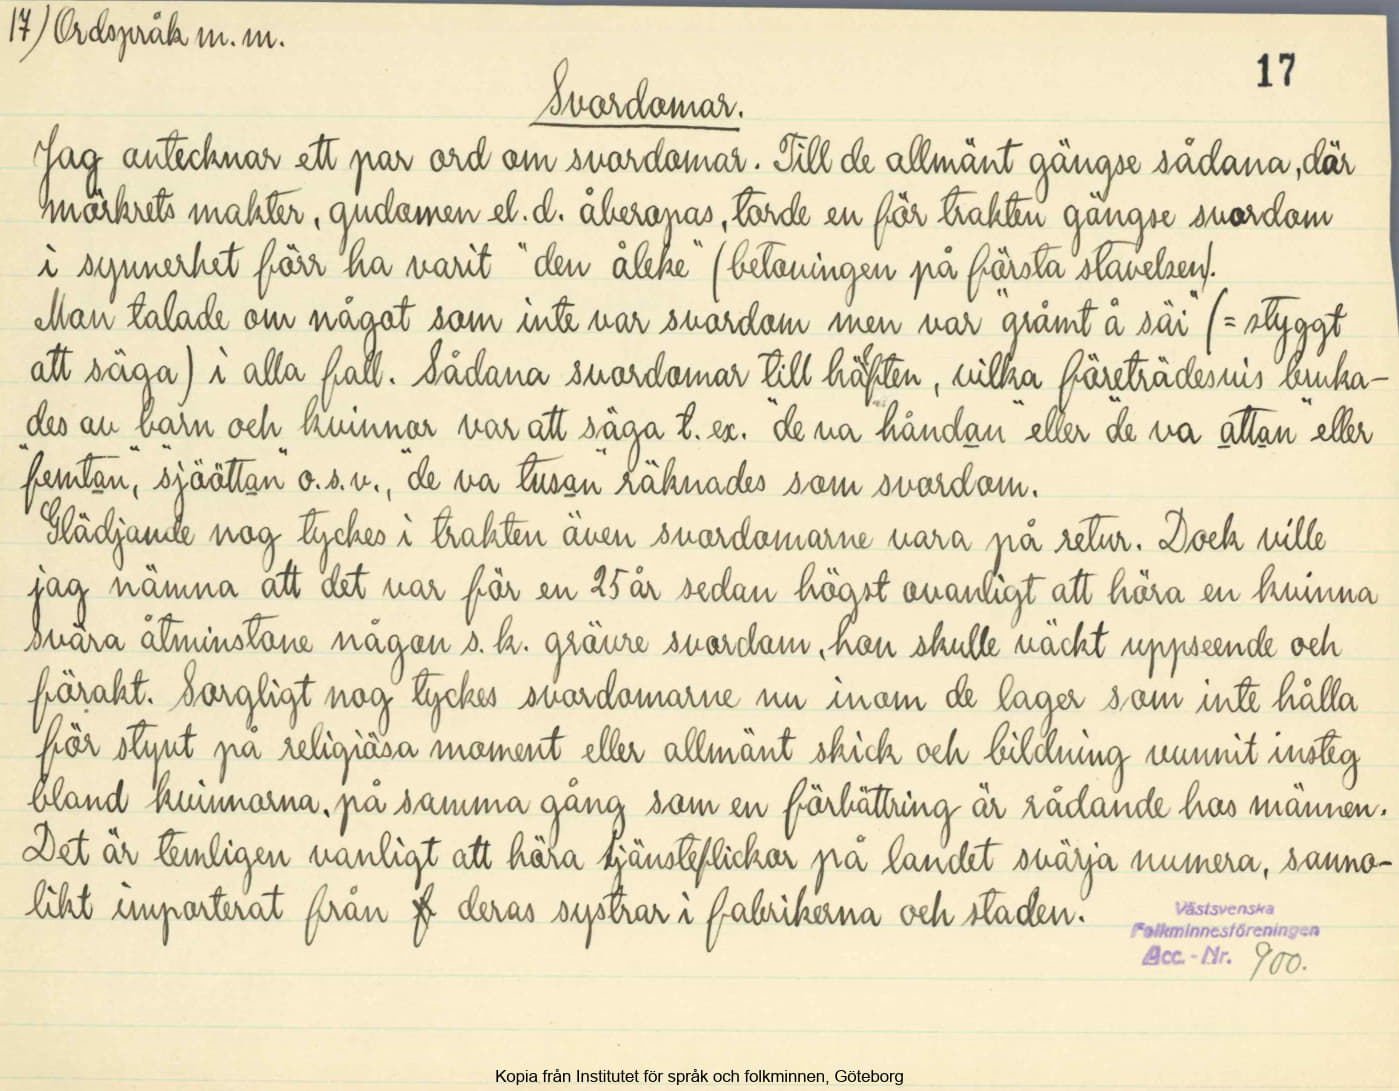 17) Ordspråk m. m.
17
Svordomar.
Jag antecknar ett par ord om svordomar. Till de allmänt gängse sådana, där
mörkrets makter, gudomen el. d. åberopas, torde en för trakten gängse svordom
i synnerhet förr ha varit "den åleke" (betoningen på första stavelsen).
Man talade om något som inte var svordom men var "gråmt å säi" (= styggt
att säga) i alla fall. Sådana svordomar till häften, vilka företrädesvis bruka-
des av barn och kvinnor var att säga t. ex. "de va håndan" eller "de va attan" eller
"femtan", "sjöötta̲n" o. s. v., "de va tusan" räknades som svordom.
Glädjande nog tyckes i trakten även svordomarne vara på retur. Dock ville
jag nämna att det var för en 25 år sedan högst ovanligt att höra en kvinna
svära åtminstone någon s. k. grövre svordom, hon skulle väckt uppseende och
förakt. Sorgligt nog tyckes svordomarne nu inom de lager som inte hålla
för stynt på religiösa moment eller allmänt skick och bildning vunnit insteg
bland kvinnorna, på samma gång som en förbättring är rådande hos männen.
Det är temligen vanligt att höra tjänsteflickor på landet svärja numera, sanno-
likt importerat från deras systrar i fabrikerna och staden.
Västsvenska
Folkminnesföreningen
Acc. - Nr. 900.
Kopia från Institutet för språk och folkminnen, Göteborg